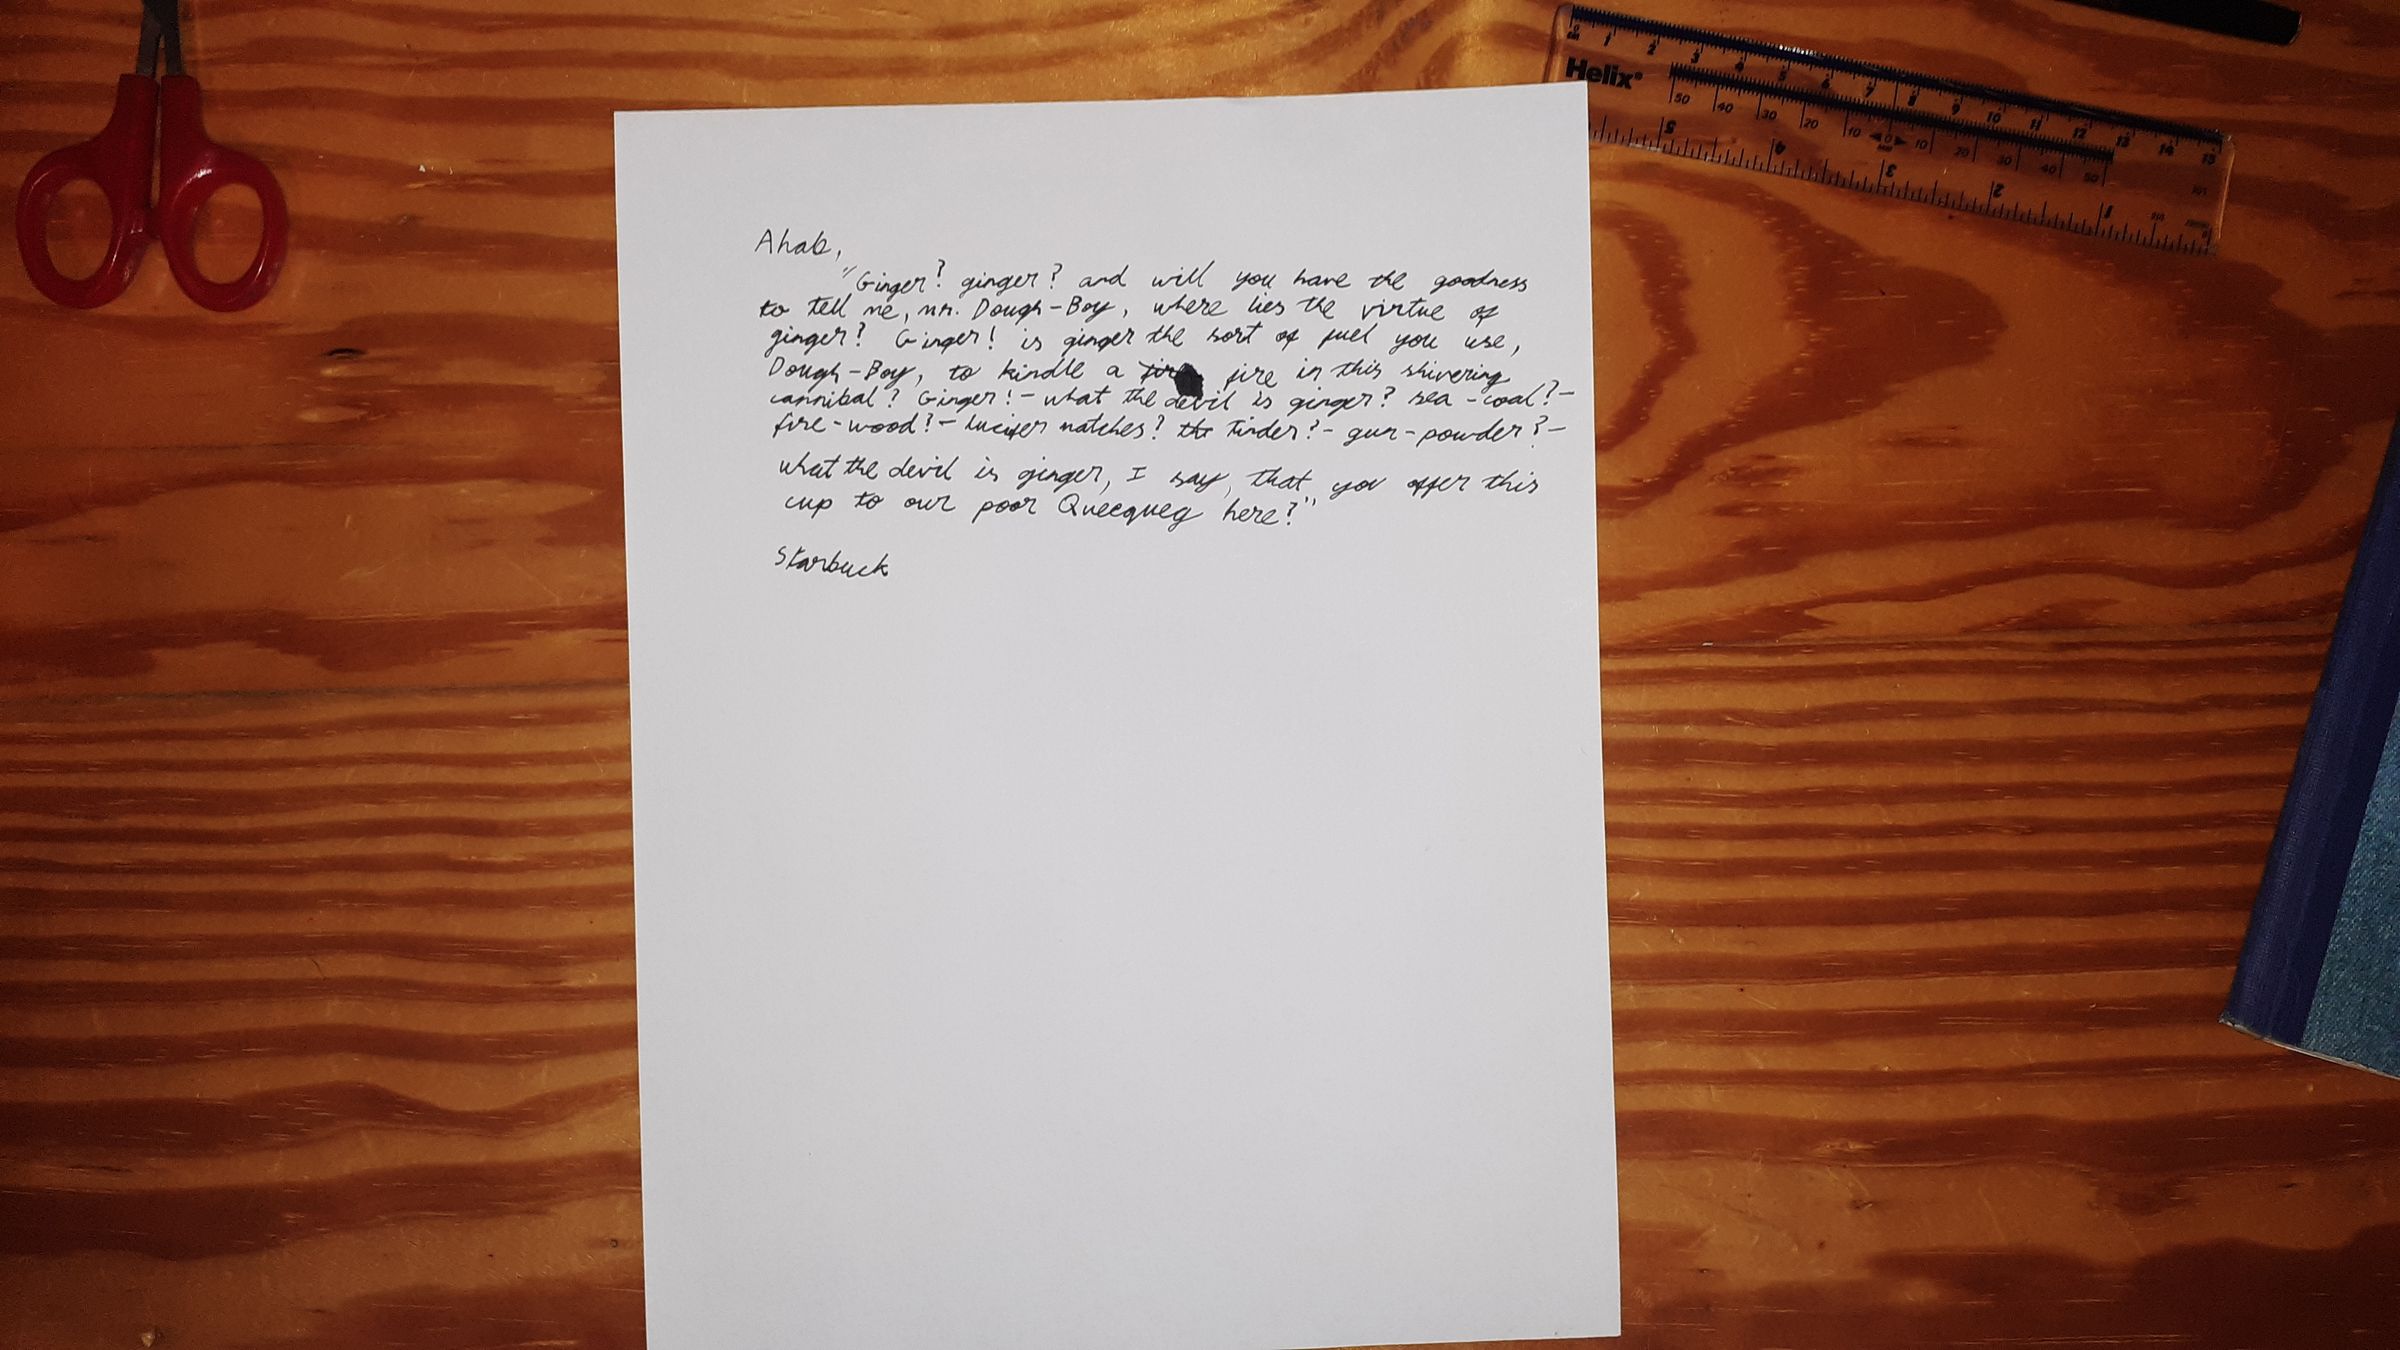 Ahab,
"Ginger? ginger? and will you have the goodness
to tell me, mr. Dough-Boy, where lies the virtue of
ginger? Ginger! is ginger the sort of fuel you use,
Dough-Boy, to kindle a fire fire in this shivering
cannibal? Ginger!- what the devil is ginger? sea-coal?-
fire-wood?- lucifer matches? th Tinder?- gun-powder?-
what the devil is ginger, I say, that you offer this
cup to our poor Queequeg here?"
Starbuck
Helix®
cm 1 2 3 4 5 6 7 8 9 10 11 12 13 14 15
50 40 30 20 10 0 10 20 30 40 50
5 4 3 2 1